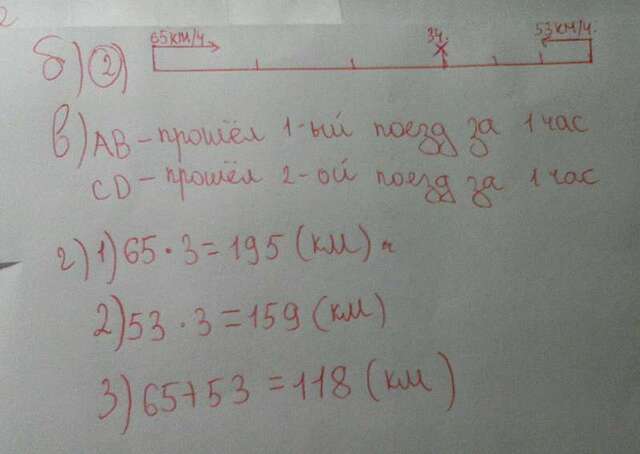 65км/ч. 3ч. 53км/ч.
б) 2)
в) АВ - прошёл 1-ый поезд за 1 час
CD - прошёл 2-ой поезд за 1 час
г) 1) 65 · 3 = 195 (км)
2) 53 · 3 = 159 (км)
3) 65 + 53 = 118 (км)